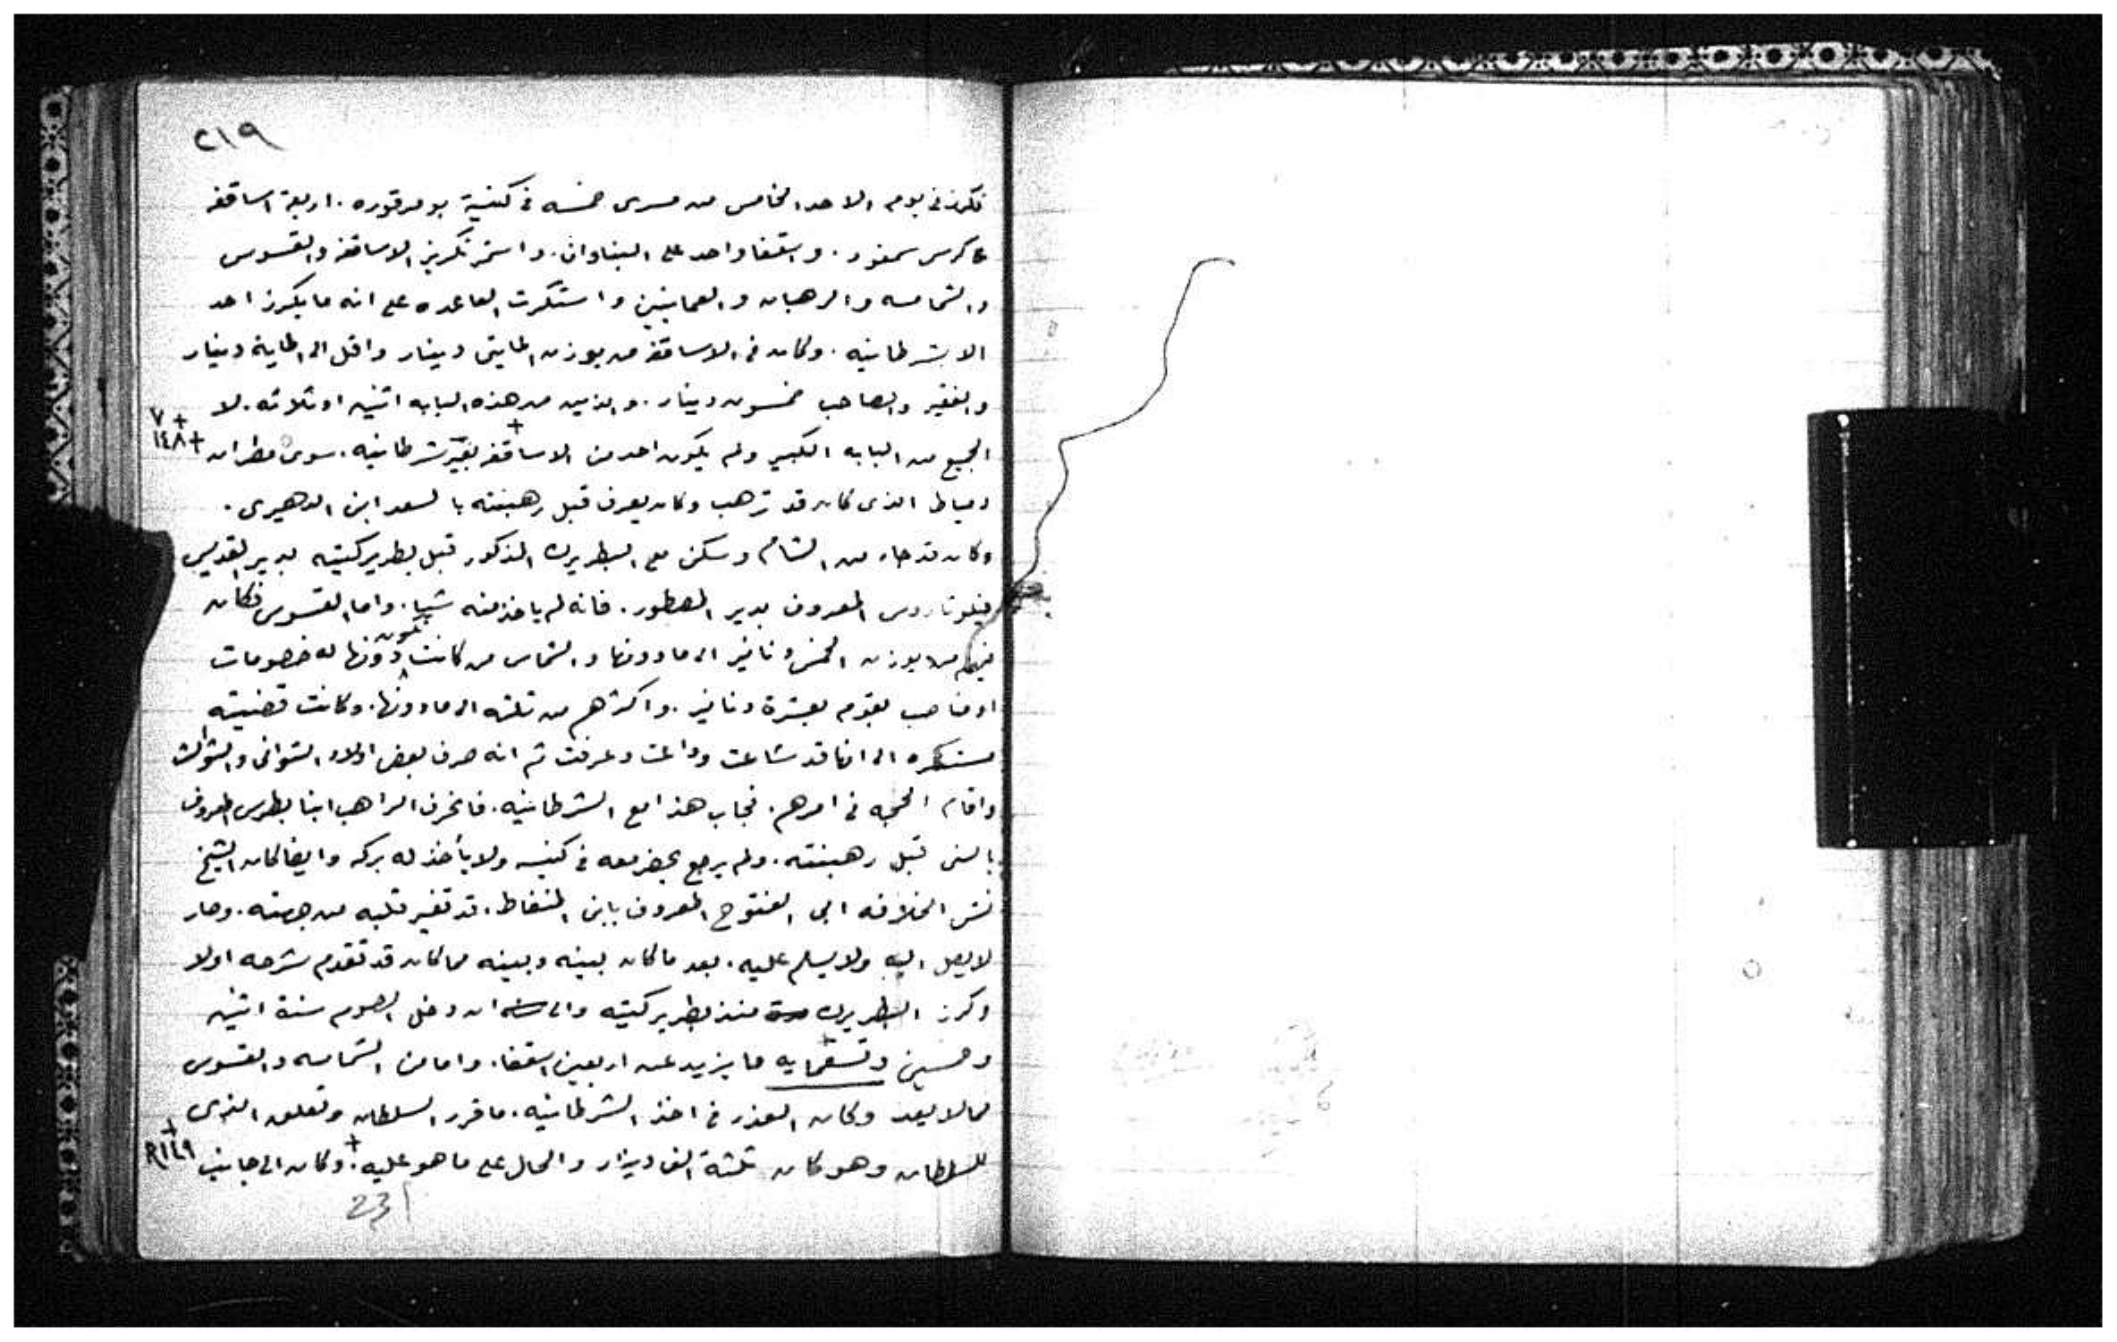 ٢١٩
فكرز في يوم الاحد الخامس من مسرى خمسه في كنيسة بو مرقوره . اربعة اساقفه
على كرسى سمنود . واسقفا واحد على البناوان . واستمر تكريز الاساقفه والقسوس
والشمامسه والرهبان والعمانيين واستكرت القاعده على انه ما يكرز احد
الا بشرطانيه . وكان في الاساقفه من يوزن المايتى دينار واقل الى الماية دينار
والفقير والصاحب خمسون دينار . والذين من هذه البابه اتنين او ثلاثه . لا
الجميع من البابه الكبير ولم يكون احد من الاساقفه بغير شرطانيه . سوى مطران
٧ +
+ ١٤٨
دمياط الذى كان قد ترهب وكان يعرف قبل رهبنته بالسعد ابن الدهيرى .
وكان قد جاء من الشام وسكن مع البطريرك المذكور قبل بطريركيته بدير القديس
فيلوتاروس المعروف بدير السطور . فانه لم ياخذ منه شيا . واما القسوس فكان
فيهم من يوزن الخمس دنانير الى ما دونها والشماس من كانت دونها له خصومات
او مناصب يقوم بعشرة دنانير . واكثرهم من ثلثه الى ما دونها . وكانت قضيته
مستكره الى انها قد شاعت وذاعت وعرفت ثم انه صرف بعض اولاد الثوانى والثوالث
واقام الحجه في امرهم . فجاب هذا مع الشرطانيه . فانحرف الراهب انبا بطرس المعروف
بالسنى قبل رهبنته . ولم يرجع يحضر معه في كنيسه ولا يأخذ له بركه وايضا كان الشيخ
نشى الخلافه ابى الفتوح المعروف بابن المنقاط . قد تغير قلبه من جهته . وصار
لا يصل اليه ولا يسلم عليه . بعد ما كان بينه وبينه مما كان قد تقدم شرحه اولا
وكرز البطريرك منذ بطريركيته والى ان دخل الصوم سنة اتنين
وخمسين وتسعمايه ما يزيد عن اربعين اسقفا . واما من الشمامسه والقسوس
مما لا يعد وكان العذر في اخذ الشرطانيه . ما قرر السلطان وتعلق الذى
للسلطان وهو كان ثلثة الف دينار والحال على ما هو عليه . وكان الى جانب
+ R ١٤٩
231